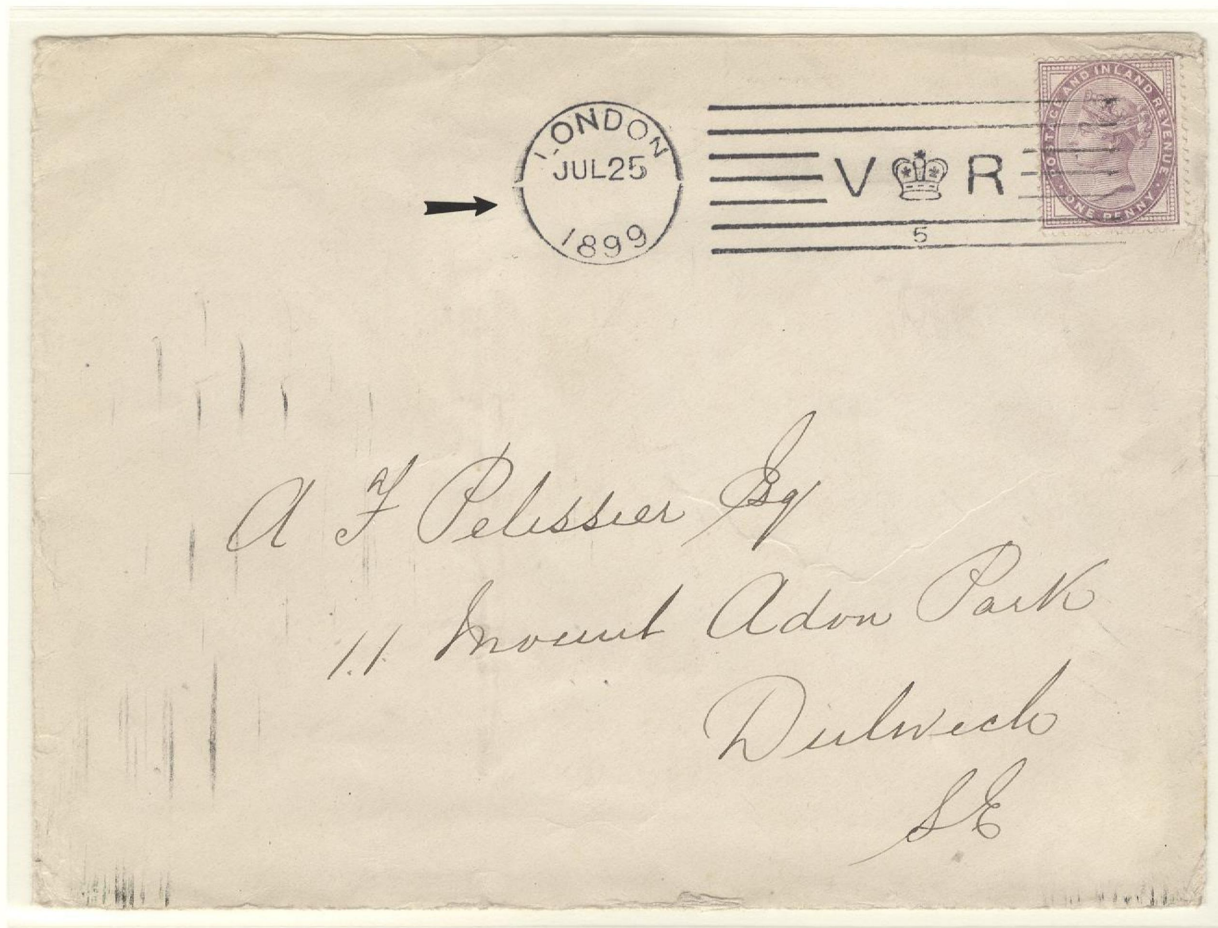 LONDON
JUL25
1899
V R
5
POSTAGE AND INLAND REVENUE
ONE PENNY
A F Pelissier Esq
11 Mount Adon Park
Dulwich
SE